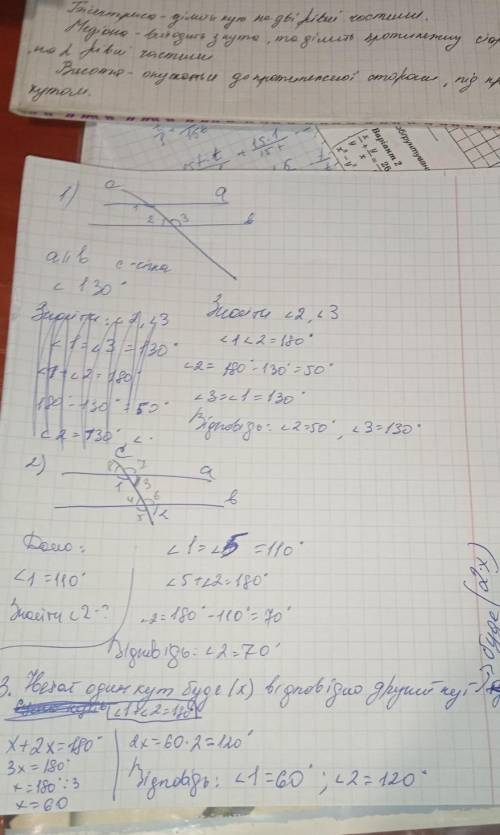 Бісектриса - ділить кут на дві рівні частини.
Медіана - виходить з кута, та ділить протилежну
на 2 рівні частини
Висота - опускається до протилежної сторони, під
кутом.
Варіант 2
1) c a
1 2 3 b
a || b c - січна
∠ 130°
Знайти: ∠2, ∠3
∠1 = ∠3 = 130°
∠1 + ∠2 = 180°
180° - 130° = 50°
∠2 = 130°, ∠.
Знайти ∠2, ∠3
∠1 ∠2 = 180°
∠2 = 180° - 130° = 50°
∠3 = ∠1 = 130°
Відповідь: ∠2 = 50°, ∠3 = 130°
2) c a
1 3
4 6 b
5 2
Дано:
∠1 = 110°
Знайти ∠2 - ?
∠1 = ∠5 = 110°
∠5 + ∠2 = 180°
∠2 = 180° - 110° = 70°
Відповідь: ∠2 = 70°
3. Нехай один кут буде (x) відповідно другий кут
→ буде (2x)
∠1 + ∠2 = 180°
x + 2x = 180°
3x = 180°
x = 180° : 3
x = 60
2x = 60 · 2 = 120°
Відповідь: ∠1 = 60°; ∠2 = 120°